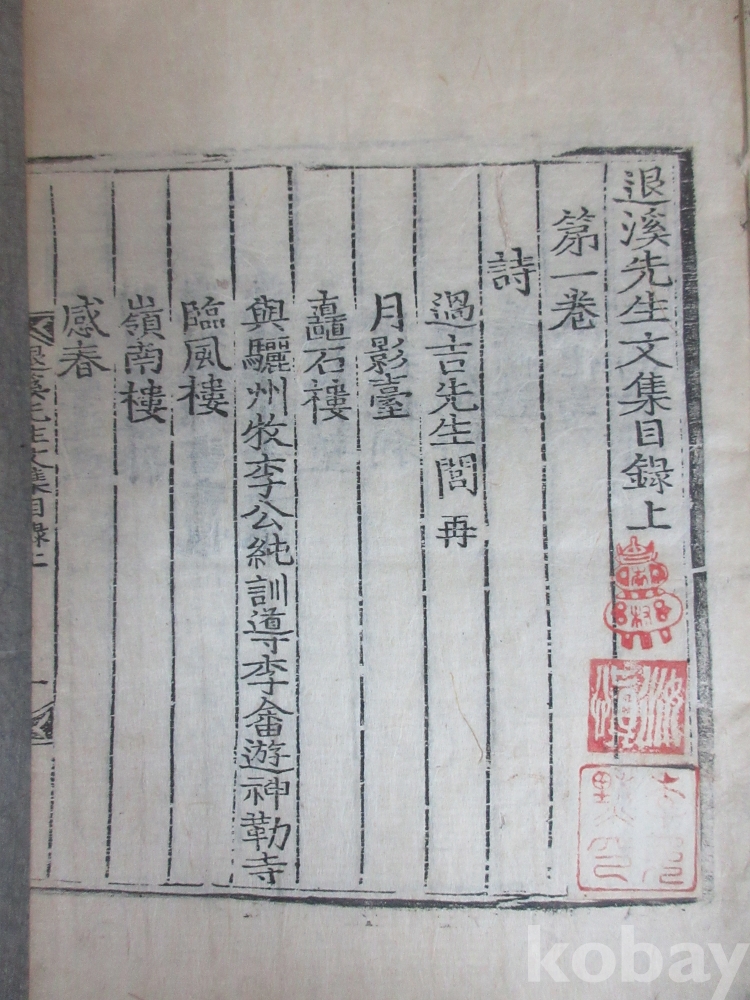 退溪先生文集目錄上
第一卷
詩
過吉先生閭 再
月影臺
矗石樓
與驪州牧李公純訓導李畬遊神勒寺
臨風樓
嶺南樓
感春
退溪先生文集目錄上
一
kobay